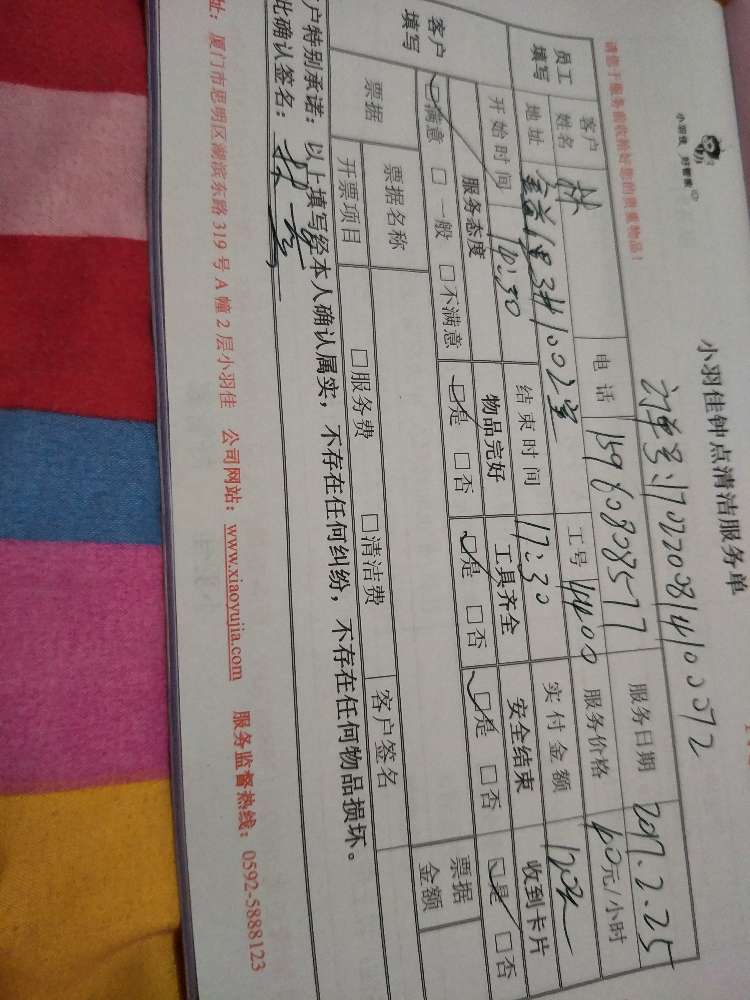 小羽佳 好管家
小羽佳钟点清洁服务单
请您于服务前收拾好您的贵重物品！
订单号:170220814100072
员工填写 客户姓名 林 电话 15960808577 服务日期 2017.2.25
地址 3#1002室 工号 4400 服务价格 60元/小时
开始时间 14:30 结束时间 17:30 实付金额
客户填写 服务态度 物品完好 工具齐全 安全结束 收到卡片
☑满意 □一般 □不满意 ☑是 □否 ☑是 □否 ☑是 □否 ☑是 □否
票据 票据名称 客户签名 票据金额
开票项目 □服务费 □清洁费
户特别承诺：以上填写经本人确认属实，不存在任何纠纷，不存在任何物品损坏。
此确认签名：
址：厦门市思明区湖滨东路319号A幢2层小羽佳 公司网站：www.xiaoyujia.com 服务监督热线：0592-5888123